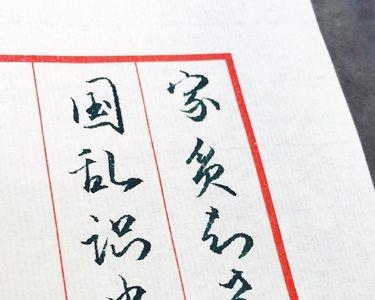 家贫知
国乱识